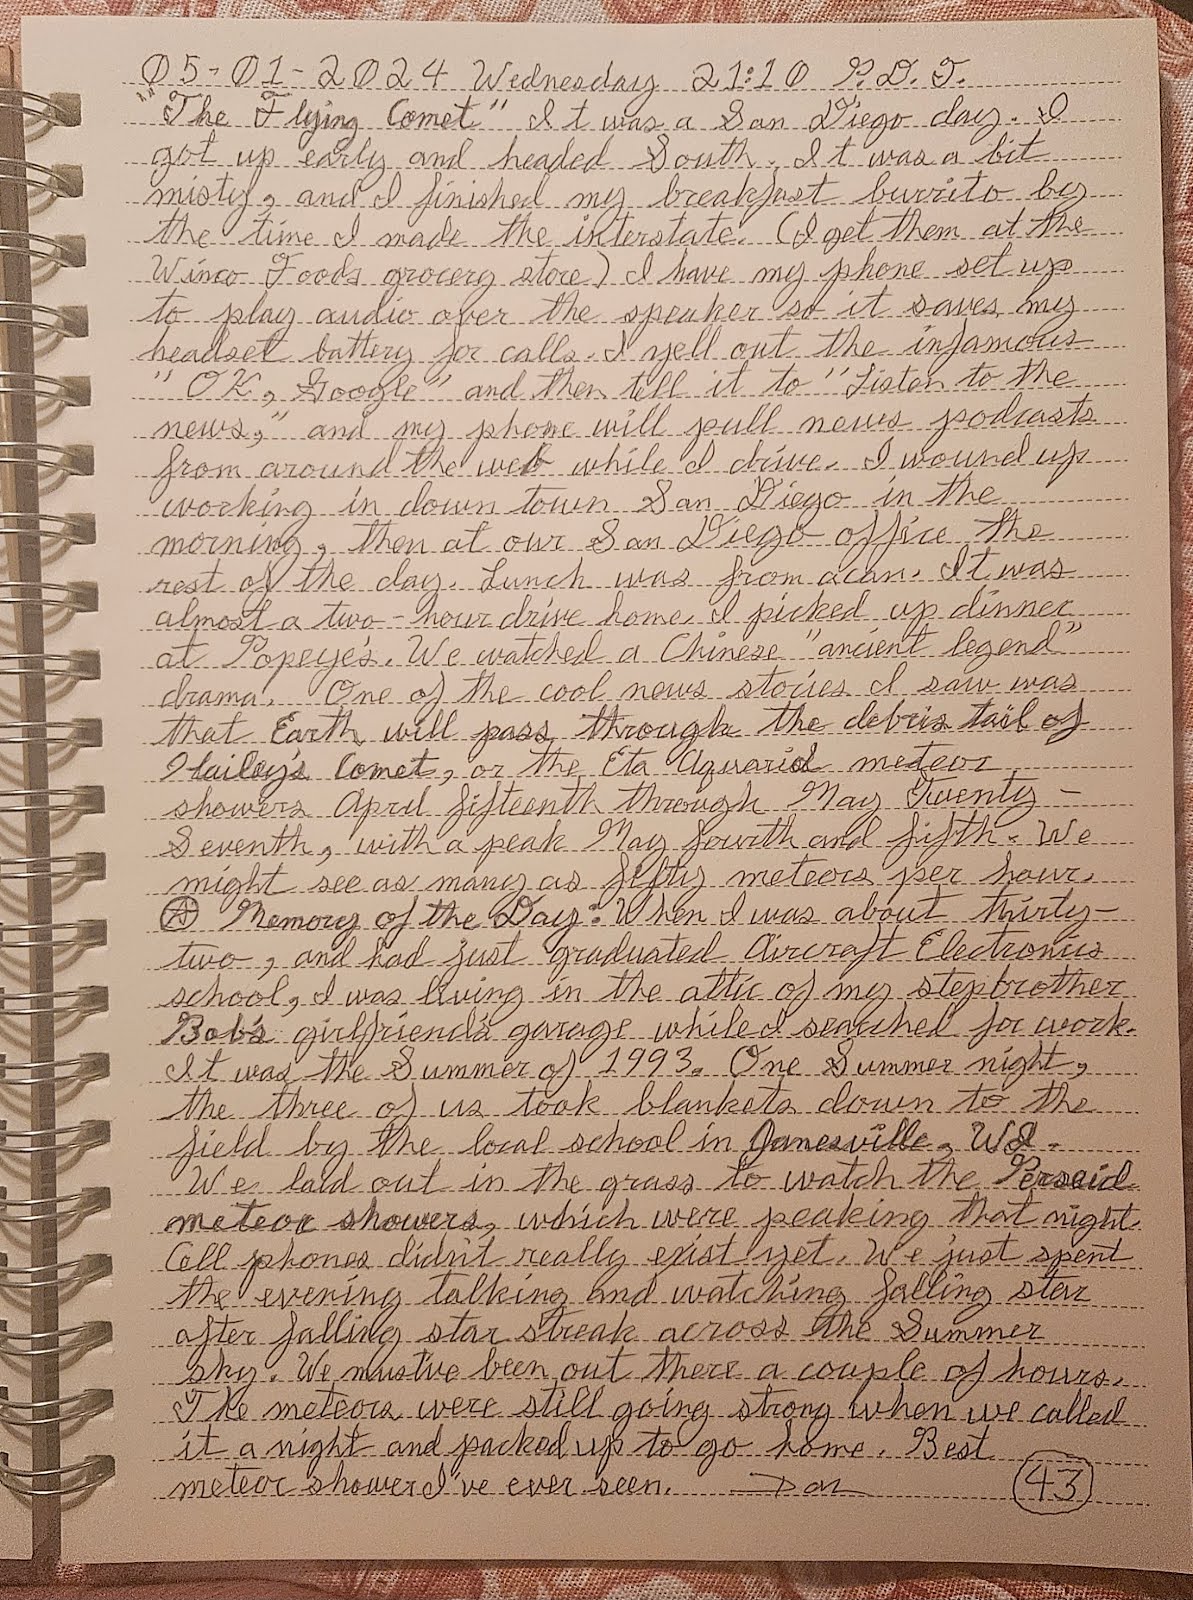 05-01-2024 Wednesday 21:10 P.D.T.
"The Flying Comet" It was a San Diego day. I
got up early and headed South. It was a bit
misty, and I finished my breakfast burrito by
the time I made the interstate. (I get them at the
Winco Foods grocery store) I have my phone set up
to play audio over the speaker so it saves my
headset battery for calls. I yell out the infamous
"OK, Google" and then tell it to "Listen to the
news," and my phone will pull news podcasts
from around the web while I drive. I wound up
working in down town San Diego in the
morning, then at our San Diego office the
rest of the day. Lunch was from a can. It was
almost a two-hour drive home. I picked up dinner
at Popeye's. We watched a Chinese "ancient legend"
drama. One of the cool news stories I saw was
that Earth will pass through the debris tail of
Hailey's Comet, or the Eta Aquariid meteor
showers April fifteenth through May Twenty-
Seventh, with a peak May fourth and fifth. We
might see as many as fifty meteors per hour.
Memory of the Day: When I was about thirty-
two, and had just graduated Aircraft Electronics
school, I was living in the attic of my stepbrother
Bob's girlfriend's garage while I searched for work.
It was the Summer of 1993. One Summer night,
the three of us took blankets down to the
field by the local school in Janesville, WI.
We laid out in the grass to watch the Perseid
meteor showers, which were peaking that night.
Cell phones didn't really exist yet. We just spent
the evening talking and watching falling star
after falling star streak across the Summer
sky. We must've been out there a couple of hours.
The meteors were still going strong when we called
it a night and packed up to go home. Best
meteor shower I've ever seen. —Don
43